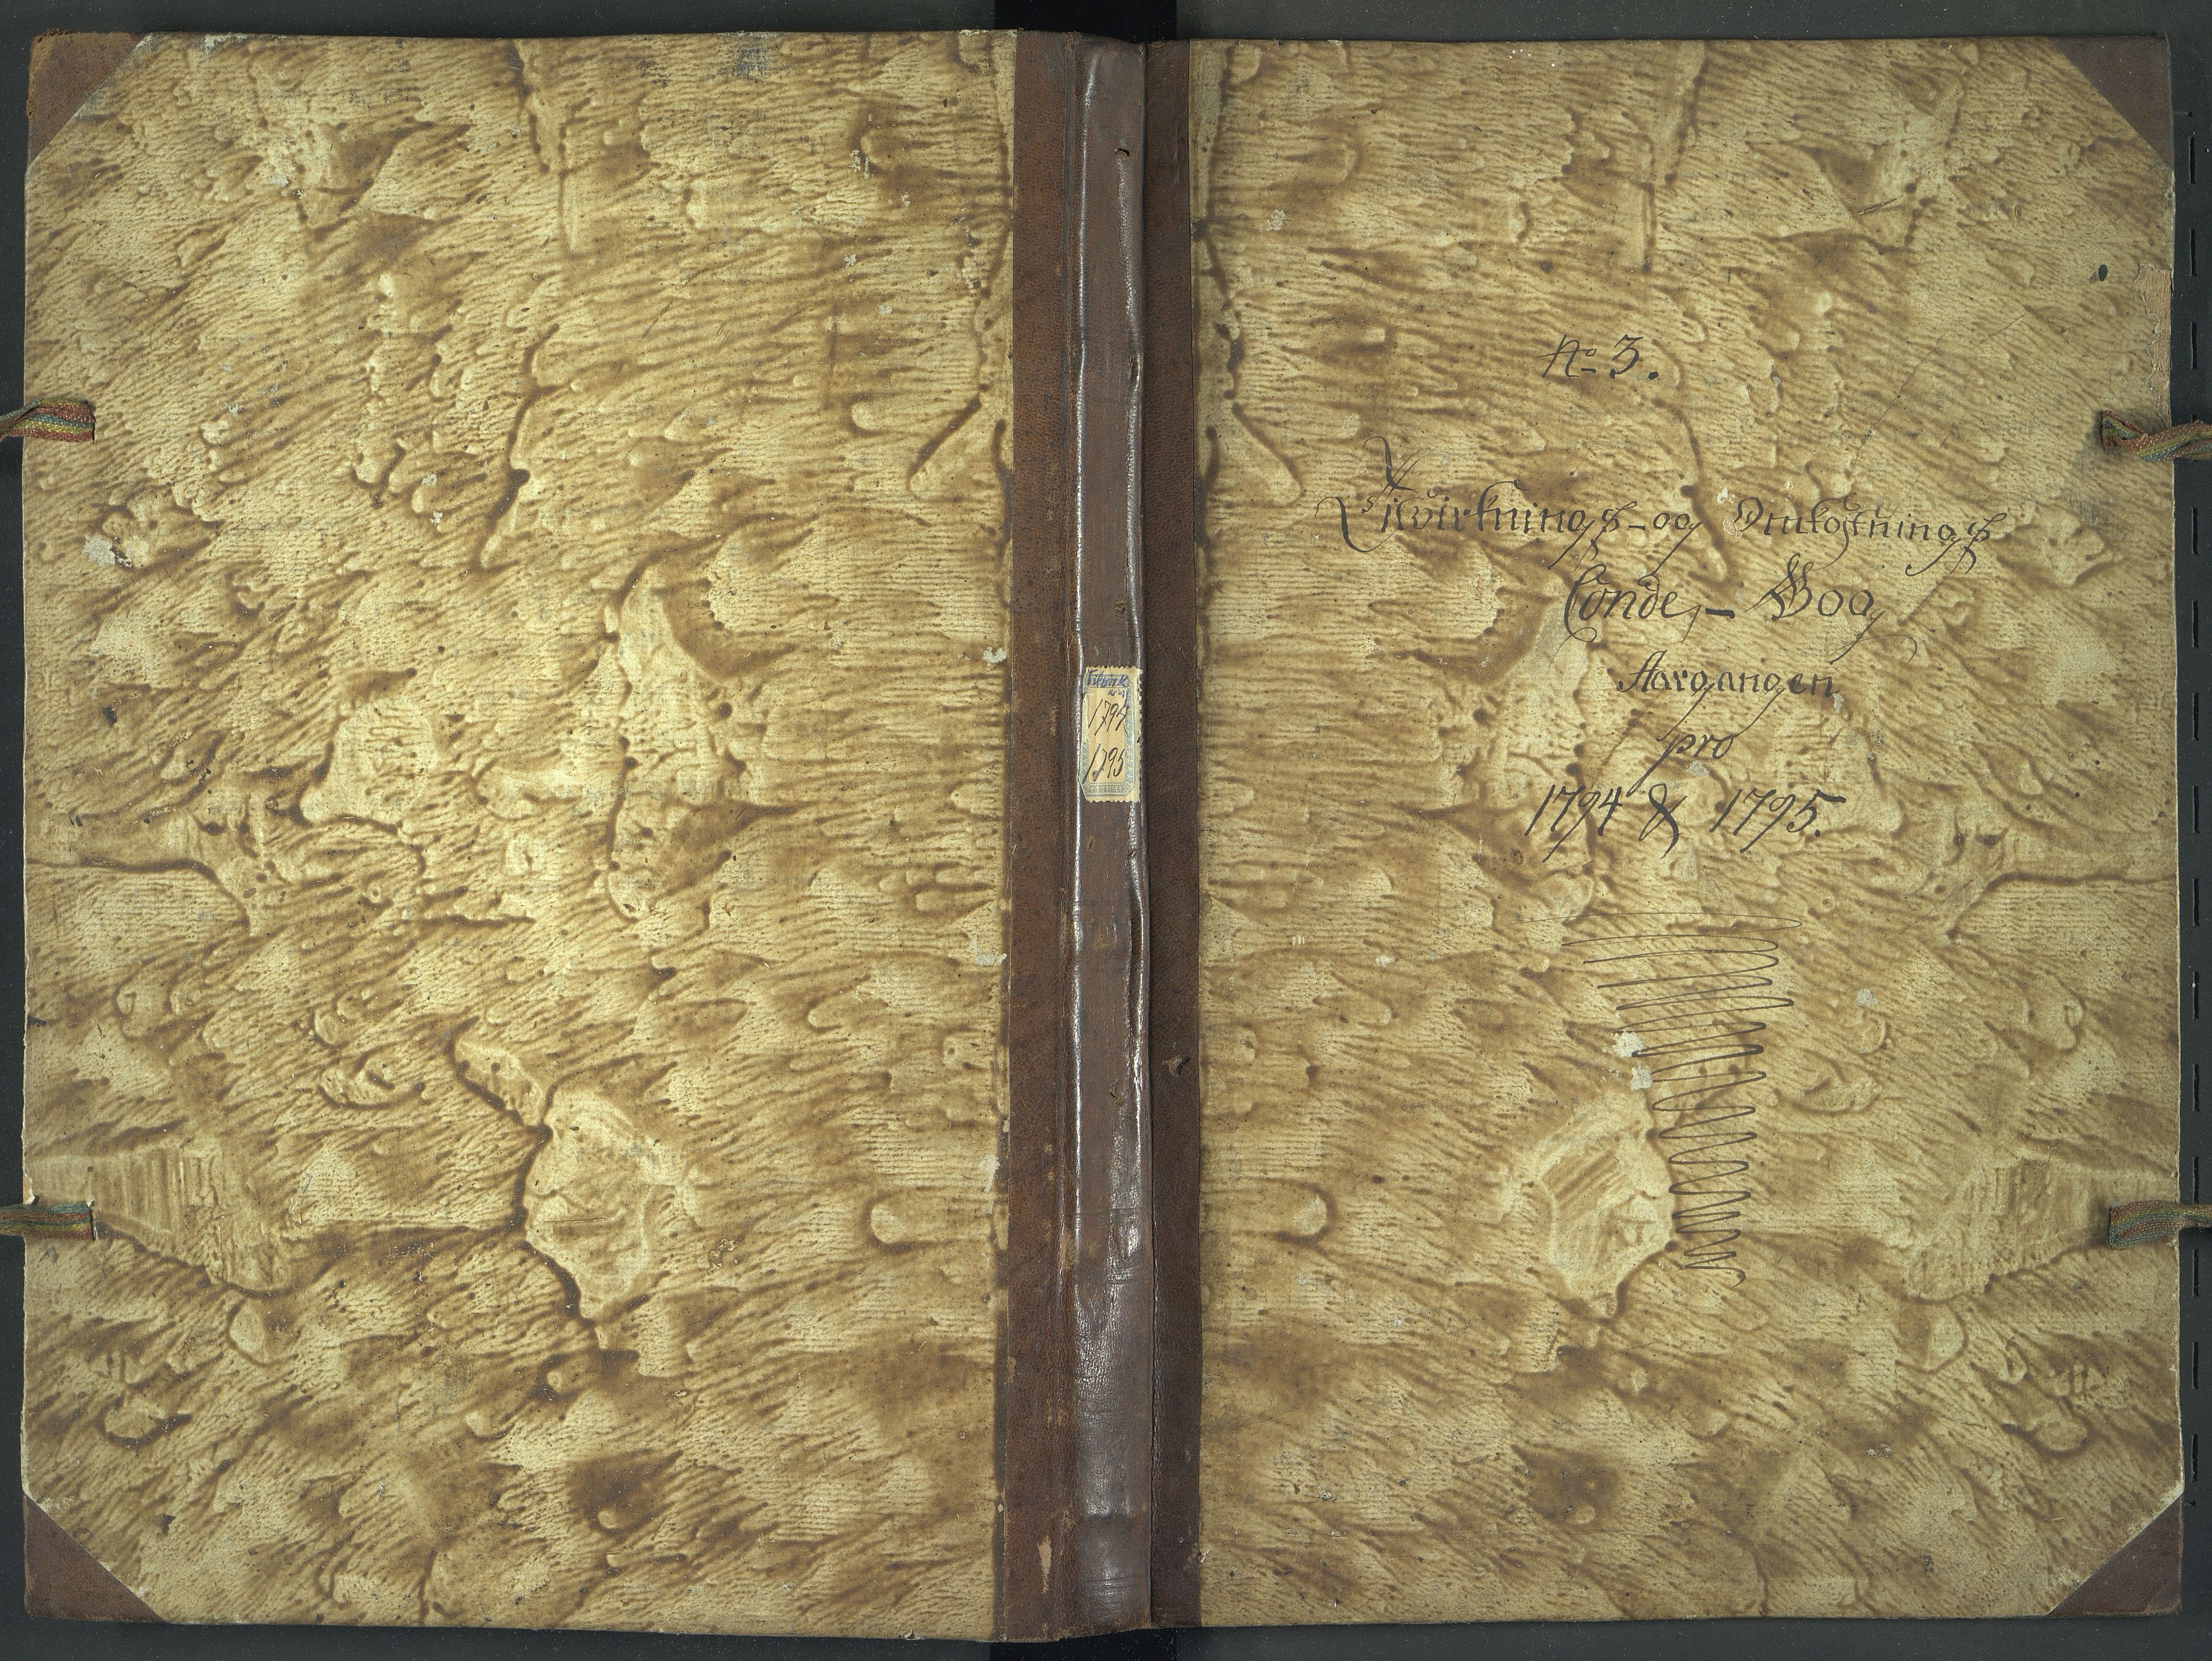 No 3.
Tilvirknings- og Omkostnings
Conde- Boog
Aargangen
pro
1794 & 1795.
1794
1795